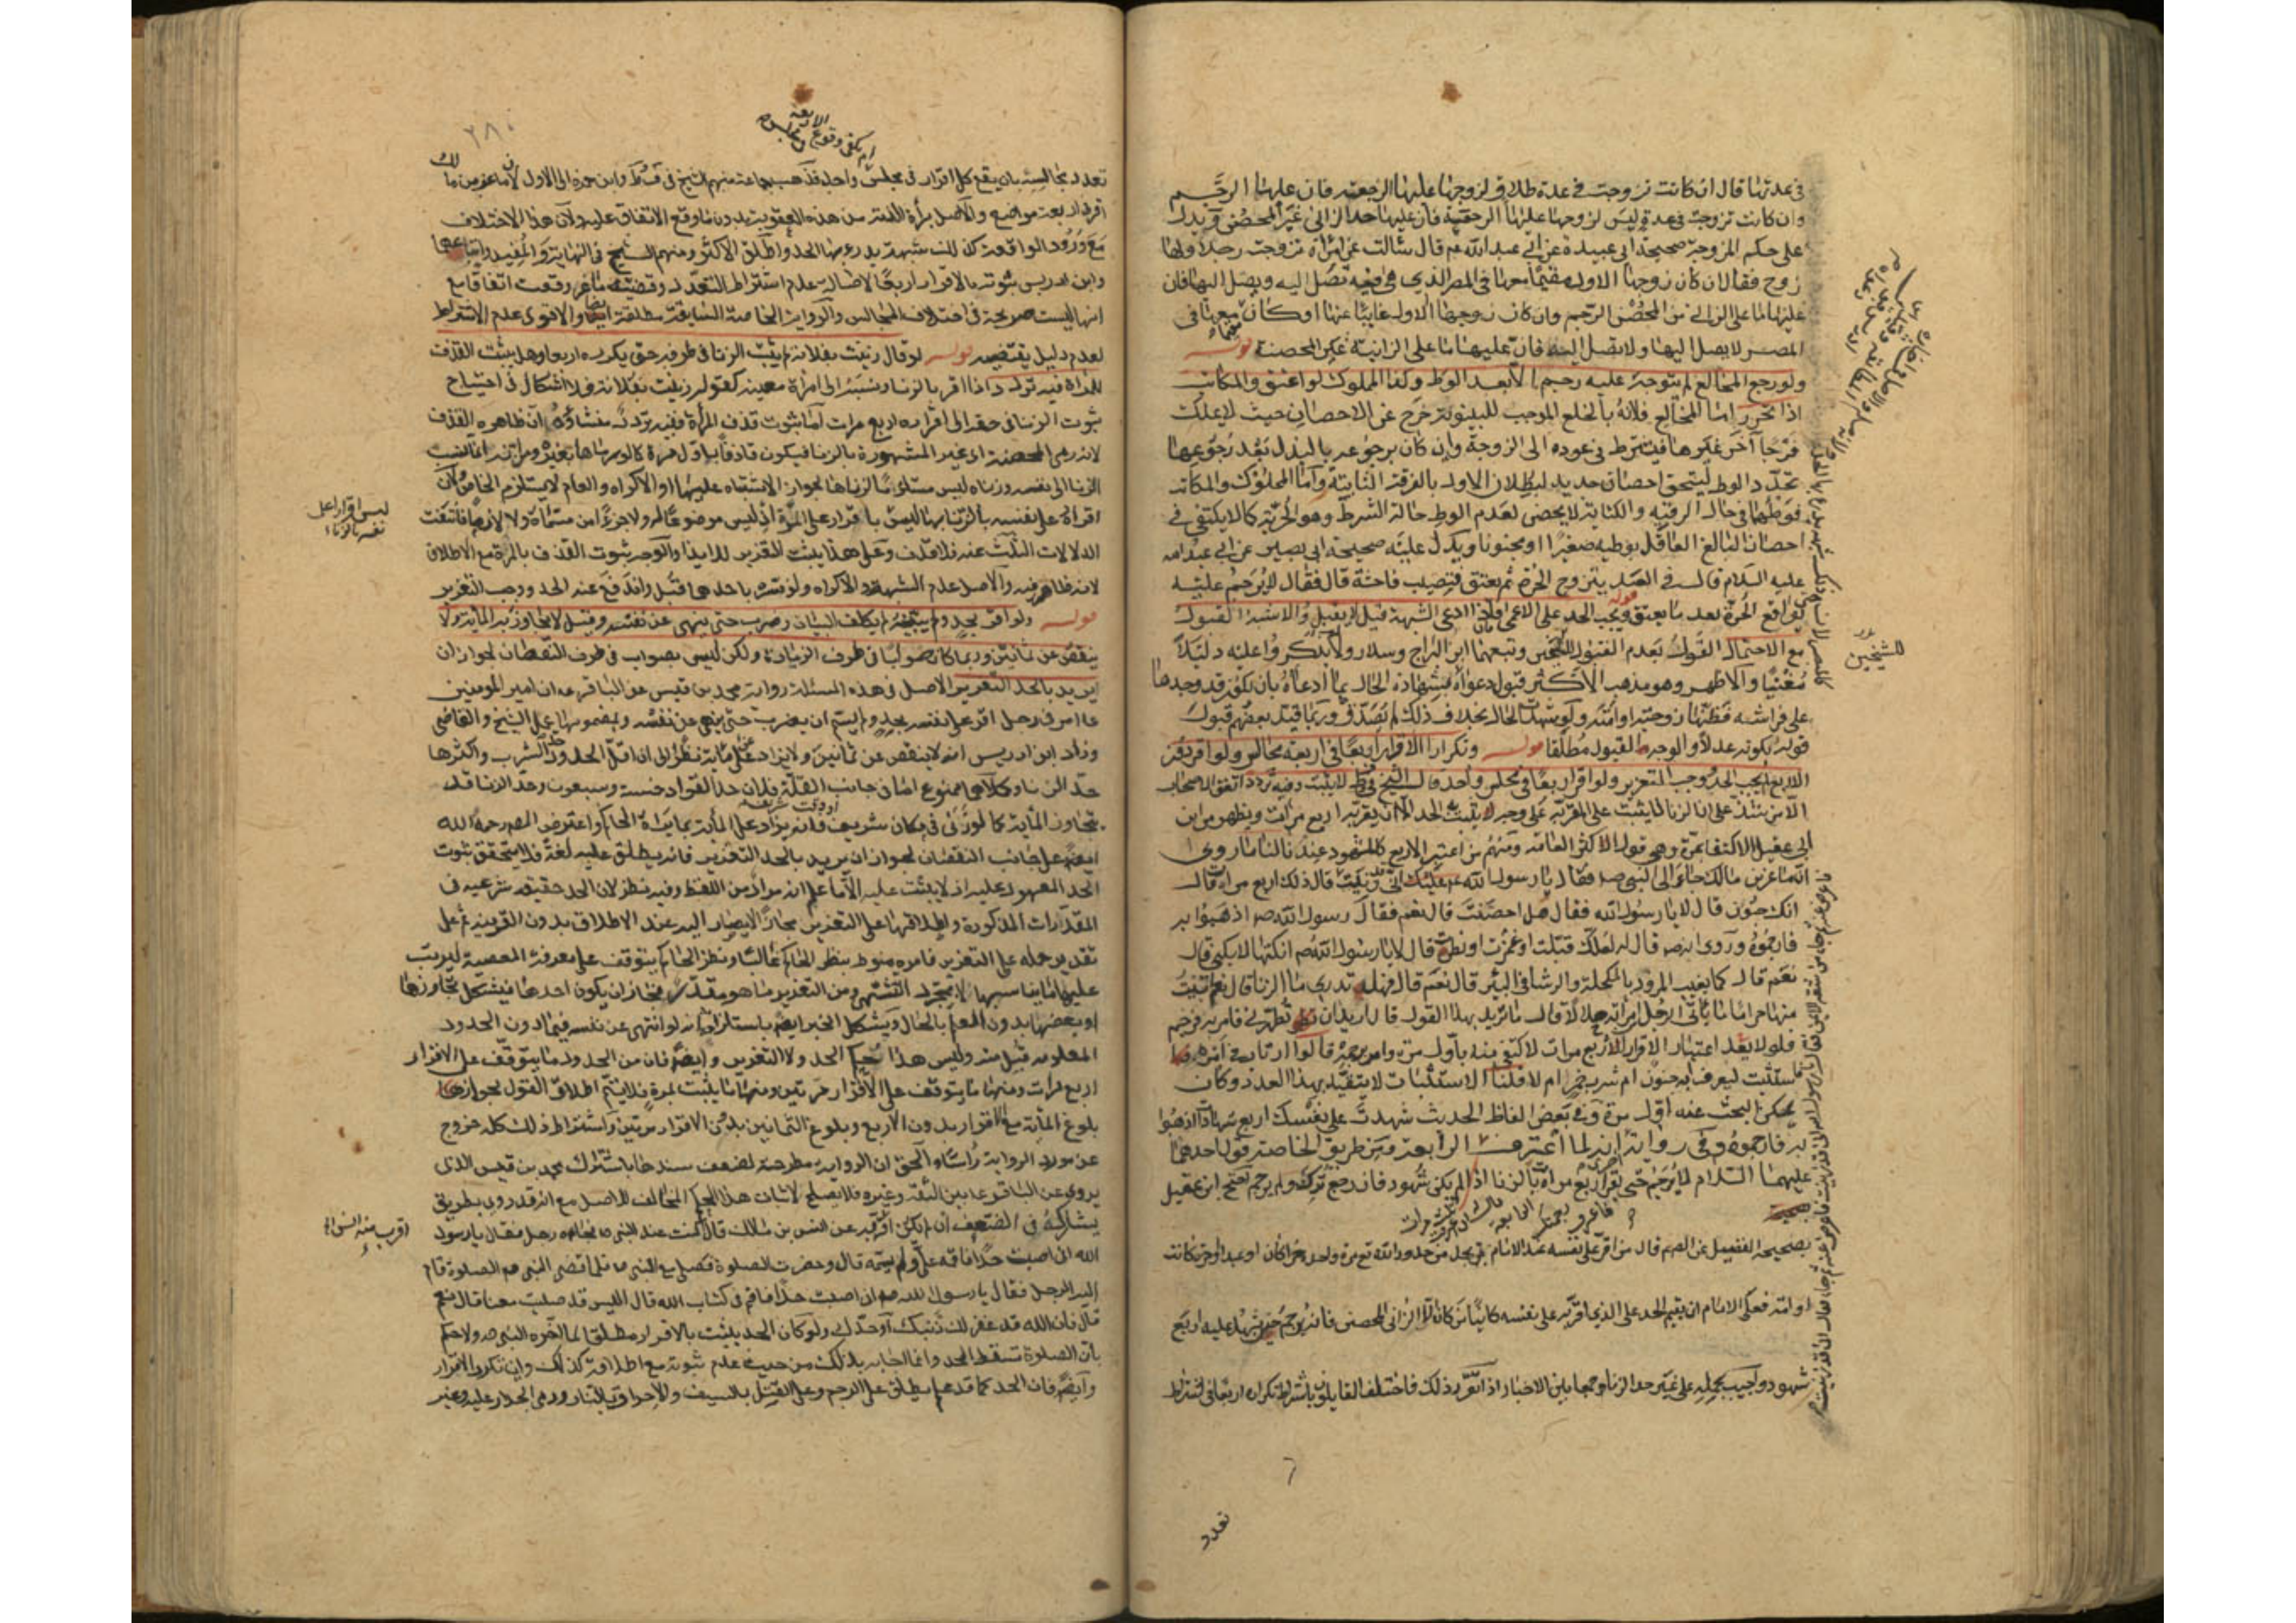 في عدتها قال ان كانت تزوجت في عدة طلاق لزوجها عليها الرجعة فان عليها الرجم
وان كانت تزوجت في عدة ليس لزوجها عليها الرجعة فان عليها حد الزاني غير المحصن ويدل
على حكم المزوجة صحيحة ابي عبيدة عن ابي عبد الله ع قال سالت عن امراة تزوجت رجلا ولها
زوج فقال ان كان زوجها الاول مقيما معها في المصر الذي هي فيه تصل اليه ويصل اليها فان
عليها ما على الزاني المحصن الرجم وان كان زوجها الاول غايبا عنها او كان مقيما معها في
المصر لا يصل اليها ولا تصل اليه فان عليها ما على الزانية غير المحصنة قوله
ولو رجع المخالع لم يتوجه عليه رجم الا بعد الوطئ وكذا المملوك لو اعتق والمكاتب
اذا تحرر اما المخالع فلانه بالخلع الموجب للبينونة خرج عن الاحصان حيث لا يملك
فرجا آخر غيرها فيشترط في عوده الى الزوجة وان كان برجوعه بالبذل بعد رجوعها
تجدد الوطئ ليتحقق احصان جديد لبطلان الاول بالفرقة الثابتة واما المملوك والمكاتب
فوطئهما في حال الرقية والكتابة لا يحصن لعدم الوطئ حالة الشرط وهو الحرية كما لا يكتفي في
احصان البالغ العاقل بوطيه صغيرا او مجنونا ويدل عليه صحيحة ابي بصير عن ابي عبد الله
عليه السلام قال في العبد يتزوج الحرة ثم يعتق فيصيب فاحشة قال فقال لا يرجم عليه
يواقع الحرة بعد ما يعتق قوله ويجب الحد على الاعمى فان ادعى الشبهة قيل لا يقبل والاشبه القبول
مع الاحتمال القول بعدم القبول للشيخين وتبعهما ابن البراج وسلار ولم يذكروا عليه دليلا
مقنعا والاظهر وهو مذهب الاكثر قبول دعواه بشهادة الحال بما ادعاه بان يكون قد وجدها
على فراشه فظنها زوجته او امته ولو شهدت الحال بخلاف ذلك لم يصدق وربما قيد بعضهم قبول
قوله بكونه عدلا والوجه القبول مطلقا قوله وتكرار الاقرار اربعا في اربعة مجالس ولو اقر دون
الاربع لم يجب الحد ووجب التعزير ولو اقر اربعا في مجلس واحد قال الشيخ في ط لا يثبت وفيه تردد اتفق الاصحاب
الا من شذ على ان الزنا لا يثبت على المقر به على وجه يثبت به الحد الا ان يقر به اربع مرات ويظهر من ابن
ابي عقيل الاكتفاء بمرة وهي قول الاكثر العامة ومنهم من اعتبر الاربع كالمشهور عندنا لنا ما روي
ان ماعز بن مالك جاء الى النبي ص فقال يا رسول الله اني زنيت قال ذلك اربع مرات قال
انك جنون قال لا يا رسول الله فقال هل احصنت قال نعم فقال رسول الله ص اذهبوا به
فارجموه وروي انه ص قال له لعلك قبلت او غمزت او نظرت قال لا يا رسول الله ص انكتها لا يكني قال
نعم قال كما يغيب المرود بالمكحلة والرشا في البئر قال نعم قال فهل تدري ما الزنا قال نعم اتيت
منها حراما ما ياتي الرجل امراته حلالا قال ما تريد بهذا القول قال اريد ان تطهرني فامر به فرجم
فلو لا يعد اعتبار الاقرار الاربع مرات لاكتفى منه باول مرة وامر برجمه قالوا ارتاب في امره
فاستثبت ليعرف ابه جنون ام شرب خمر ام لا قلنا الاستثبات لا يتقيد بهذا العدد وكان
يمكن البحث عنه اول مرة وفي بعض الفاظ الحديث شهدت على نفسك اربع شهادات اذهبوا
به فارجموه وفي رواية انه لما اعترف الرابعة ومن طريق الخاصة قول احدهما
عليهما السلام لا يرجم حتى يقر اربع مرات بالزنا اذا لم يكن شهود فان رجع ترك ولم يرجم احتج ابن عقيل
بصحيحة الفضيل عن الص ع قال من اقر على نفسه عند الامام بحق بحد من حدود الله مرة واحدة حرا كان او عبدا او حرة كانت
او امة فعلى الامام ان يقيم الحد على الذي اقر به على نفسه كائنا من كان الا الزاني المحصن فانه لا يرجم حتى يشهد عليه اربع
شهود واجيب بحمله على غير حد الزنا جمعا بين الاخبار اذا تقرر ذلك فاختلف القايلون باشتراط تكراره اربعا في اشتراط
للشيخين
تعدد
٢٨٠
ام يكفي وقوع الاربعة في مجلس
تعدد مجالسه بان يقع كل اقرار في مجلس واحد فذهب جماعة منهم الشيخ في ف وط وابن حمزة الى الاول لان ماعز بن مالك
اقر في اربعة مواضع والاصل برأة الذمة من هذه العقوبة بدون ما وقع الاتفاق عليه ولان هذا الاختلاف
مع ورود الواقعة كذلك شبهة يدرء بها الحد واطلق الاكثر ومنهم الشيخ في النهاية والمفيد واتباعهما
وابن ادريس ثبوته بالاقرار اربعا لاصالة عدم اشتراط التعدد وقضية ماعز وقعت اتفاقا مع
انها ليست صريحة في اختلاف المجالس والرواية الخاصة السابقة مطلقة ايضا والاقوى عدم الاشتراط
لعدم دليل يقتضيه قوله لو قال زنيت بفلانة لم يثبت الزنا في طرفه حتى يكرره اربعا وهل يثبت القذف
للمراة فيه تردد اذا اقر بالزنا ونسبه الى امراة معينة كقوله زنيت بفلانة فلا اشكال في احتياج
ثبوت الزنا في حقه الى اقراره اربع مرات اما ثبوت قذف المراة ففيه تردد منشاؤه ان ظاهره القذف
لانه رمى المحصنة اي غير المشهورة بالزنا فيكون قاذفا باول مرة كالو رماها بغيره ومن انه انما نسب
الزنا الى نفسه وزناه ليس مستلزما لزناها لجواز الاشتباه عليها او الاكراه والعام لا يستلزم الخاص ولان
اقراره على نفسه بالزنا بها ليس باقرار على المراة اذ ليس موضوعا له ولا جزءا من مسماه ولا لازما فانتفت
الدلالات الثلث عنه فلا قذف وعلى هذا يثبت التعزير للايذا والوجه ثبوت القذف بالمرة مع الاطلاق
لانه ظاهر فيه والاصل عدم الشبهة والاكراه ولو فسره باحدهما قبل واندفع عنه الحد ووجب التعزير
قوله ولو اقر بحد ولم يبينه لم يكلف البيان وضرب حتى ينهى عن نفسه وقيل لا يتجاوز به المائة ولا
ينقص عن ثمانين وربما كان صوابا في طرف الزيادة ولكن ليس بصواب في طرف النقصان لجواز ان
يريد بالحد التعزير الاصل في هذه المسئلة رواية محمد بن قيس عن الباقر ع ان امير المومنين
ع امر في رجل اقر على نفسه بحد ولم يسم ان يضرب حتى ينهى عن نفسه وبمضمونها عمل الشيخ والقاضي
وزاد ابن ادريس انه لا ينقص عن ثمانين ولا يزاد على مائة نظرا الى ان اقل الحدود حد الشرب واكثرها
حد الزنا وكلاهما ممنوع اما في جانب القلة فلان حد القواد خمسة وسبعون وحد الزنا قد
يتجاوز المائة كما لو زنى في مكان شريف فانه يزاد على المائة بما يراه الحاكم واعترض المص رحمه الله
ايضا على جانب النقصان لجواز ان يريد بالحد التعزير فانه يطلق عليه لغة فلا يتحقق ثبوت
الحد المعهود عليه اذ لا يثبت عليه الا ما علم انه مراد من اللفظ وفيه نظر لان الحد حقيقة شرعية في
المقدرات المذكورة واطلاقها على التعزير مجاز لا يصار اليه عند الاطلاق بدون القرينة ثم على
تقدير حمله على التعزير فامره منوط بنظر الحاكم غالبا ونظر الحاكم يتوقف على معرفة المعصية ليرتب
عليها ما يناسبها لا بمجرد التشهي ومن التعزير ما هو مقدر فجاز ان يكون احدها فيشكل تجاوزها
او بعضها بدون العلم بالحال ويشكل الخبر ايضا باستلزامه انه لو انتهى عن نفسه فيما دون الحدود
المعلومة قبل منه وليس هذا حكم الحد ولا التعزير وايضا فان من الحدود ما يتوقف على الاقرار
اربع مرات ومنها ما يتوقف على الاقرار مرتين ومنها ما يثبت بمرة فلا يتم اطلاق القول بجواز
بلوغ المائة مع الاقرار بدون الاربع وبلوغ الثمانين بدون الاقرار مرتين واشتراط ذلك كله خروج
عن مورد الرواية راسا والحق ان الرواية مطرحة لضعف سندها باشتراك محمد بن قيس الذي
يروي عن الباقر ع بين الثقة وغيره فلا يصلح لاثبات هذا الحكم المخالف للاصل مع انه قد روي بطريق
يشاركه في الضعف ان لم يكن اقرب عن انس بن مالك قال كنت عند النبي ص فجاءه رجل فقال يا رسول
الله اني اصبت حدا فاقمه علي ولم يسمه قال وحضرت الصلوة فصلى مع النبي ص فلما قضى النبي ص الصلوة قام
اليه الرجل فقال يا رسول الله ص اني اصبت حدا فاقم في كتاب الله قال اليس قد صليت معنا قال نعم
قال فان الله قد غفر لك ذنبك او حدك ولو كان الحد يثبت بالاقرار مطلقا لما اخره النبي ص ولا حكم
بان الصلوة تسقط الحد وانما اجابه بذلك من حيث عدم ثبوته مع اطلاقه كذلك وان تكرر الاقرار
وايضا فان الحد كما قد علم يطلق على الرجم وعلى القتل بالسيف والاحراق بالنار ورمي الجدار عليه وغير
ليس اقرارا على
نفسه بالزنا